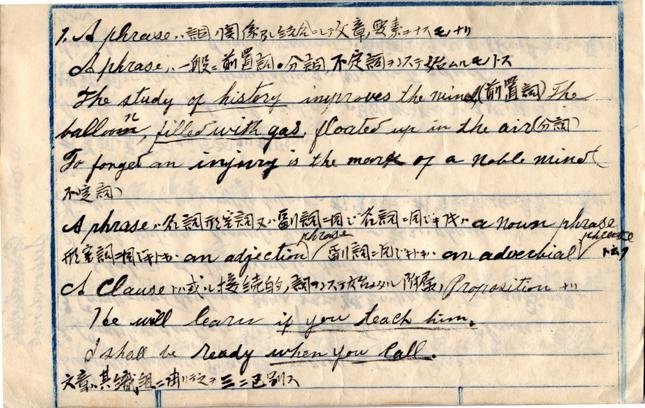 1. A phrase ハ詞ノ関係ノ結合ニシテ文章ノ要素ナスモノナリ
A phrase ハ一般ニ前置詞、分詞、不定詞ヲ以テ始ムルモノトス
The study of history improves the mind (前置詞) The
balloon, filled with gas, floated up in the air (分詞)
To forget an injury is the mark of a noble mind (
不定詞)
A phrase ハ名詞形容詞又ハ副詞ニ同ジ名詞ニ同ジキトキハ a noun phrase
形容詞ニ同ジキトキハ an adjection phrase 副詞ニ同ジキトキハ an adverbial phrase ト云フ
A Clause ハ或ル接続的ノ詞ヲ以テ始メル附属ノ Proposition ナリ
He will learn if you teach him.
I shall be ready when you call.
文章ハ其ノ組織ニ二区別ス